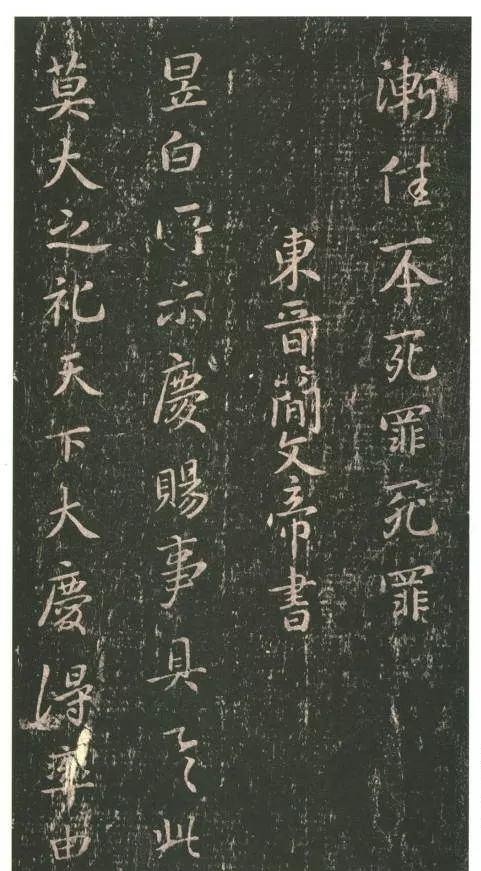 漸佳不本死罪死罪
東晉簡文帝書
昱白所示慶賜事具之此
莫大之礼天下大慶得率由